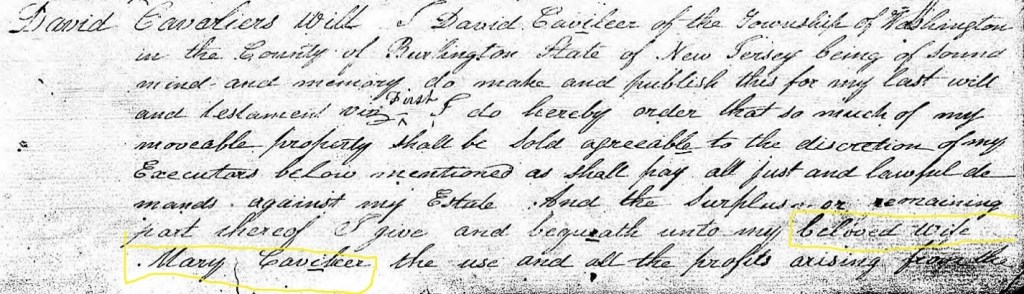 David Cavaliers Will I David Cavileer of the Township of Washington
in the County of Burlington State of New Jersey being of sound
mind and memory do make and publish this for my last will
and testament viz First I do hereby order that so much of my
moveable property shall be sold agreeable to the discretion of my
Executors below mentioned as shall pay all just and lawful de
mands against my Estate And the Surplus or remaining
part thereof I give and bequeath unto my beloved wife
Mary Cavileer the use and all the profits arising